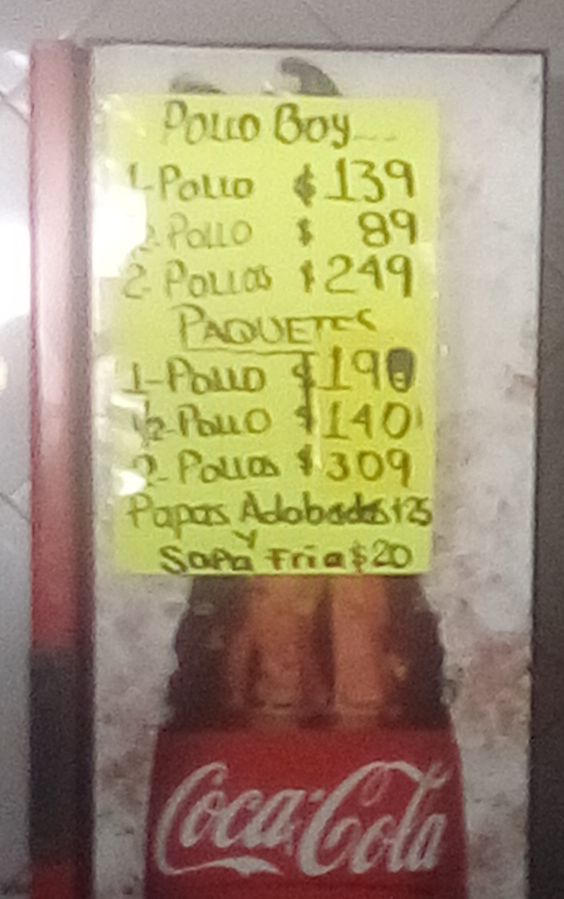 Pollo Boy
1-Pollo $139
½ Pollo $ 89
2-Pollos $249
PAQUETES
1-Pollo $190
½-Pollo $140
2-Pollos $309
Papas Adobadas $25
y
Sopa Fria $20
Coca-Cola